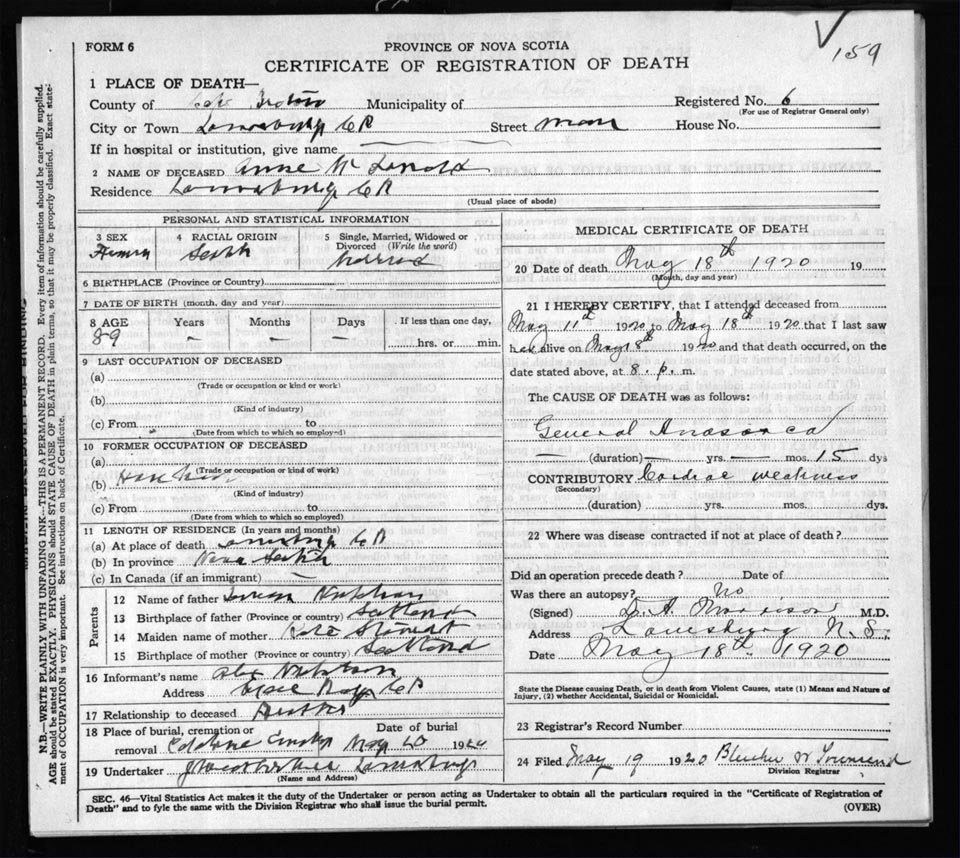 159
FORM 6
PROVINCE OF NOVA SCOTIA
CERTIFICATE OF REGISTRATION OF DEATH
1 PLACE OF DEATH—
County of Municipality of Registered No. 6
(For use of Registrar General only)
City or Town Louisburg C B Street Main House No.
If in hospital or institution, give name
2 NAME OF DECEASED Anne Mc
Residence Louisburg C B
(Usual place of abode)
PERSONAL AND STATISTICAL INFORMATION
3 SEX 4 RACIAL ORIGIN 5 Single, Married, Widowed or Divorced (Write the word)
Scotch
6 BIRTHPLACE (Province or Country)
7 DATE OF BIRTH (month, day and year)
8 AGE Years Months Days If less than one day,
89 – – – hrs. or min.
9 LAST OCCUPATION OF DECEASED
(a)
(Trade or occupation or kind or work)
(b)
(Kind of industry)
(c) From to
(Date from which to which so employed)
10 FORMER OCCUPATION OF DECEASED
(a)
(Trade or occupation or kind of work)
(b)
(Kind of industry)
(c) From to
(Date from which to which so employed)
11 LENGTH OF RESIDENCE (In years and months)
(a) At place of death Louisburg C B
(b) In province Nova Scotia
(c) In Canada (if an immigrant) —
Parents
12 Name of father
13 Birthplace of father (Province or country) Scotland
14 Maiden name of mother Kate Stewart
15 Birthplace of mother (Province or country) Scotland
16 Informant's name Alex
Address C B
17 Relationship to deceased Brother
18 Place of burial, cremation or removal Date of burial
May 20 1920
19 Undertaker Louisburg
(Name and Address)
MEDICAL CERTIFICATE OF DEATH
20 Date of death May 18th 1920 19
(Month, day and year)
21 I HEREBY CERTIFY, that I attended deceased from
May 11th 1920 to May 18th 1920 that I last saw
her alive on May 18th 1920 and that death occurred, on the
date stated above, at 8. p. m.
The CAUSE OF DEATH was as follows:
General Anasarca
— (duration) — yrs. — mos. 15 dys
CONTRIBUTORY Cardiac weakness
(Secondary)
(duration) yrs. mos. dys.
22 Where was disease contracted if not at place of death?
Did an operation precede death? Date of
Was there an autopsy? No
(Signed) D. A. Morrison M.D.
Address Louisburg N. S.
Date May 18th 1920
State the Disease causing Death, or in death from Violent Causes, state (1) Means and Nature of
Injury, (2) whether Accidental, Suicidal or Homicidal.
23 Registrar's Record Number
24 Filed May 19 1920 Townsend
Division Registrar
SEC. 46—Vital Statistics Act makes it the duty of the Undertaker or person acting as Undertaker to obtain all the particulars required in the "Certificate of Registration of
Death" and to fyle the same with the Division Registrar who shall issue the burial permit.
(OVER)
N.B.—WRITE PLAINLY WITH UNFADING INK—THIS IS A PERMANENT RECORD. Every item of information should be carefully supplied.
AGE should be stated EXACTLY. PHYSICIANS should STATE CAUSE OF DEATH in plain terms, so that it may be properly classified. Exact state-
ment of OCCUPATION is very important. See instructions on back of Certificate.